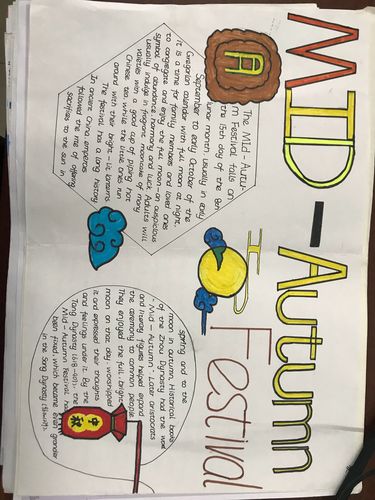 MID - Autumn
Festival
The Mid - Autu-
mn Festival falls on
the 15th day of the 8th
lunar month, usually in early
September to early October of the
Gregorian calendar with full moon at night.
It is a time for family members and loved ones
to congregate and enjoy the full moon - an auspicious
symbol of abundance, harmony and luck. Adults will
usually indulge in fragrant mooncake of many
varieties with a good cup of piping hot
Chinese tea, while the little ones run
around with their bright - lit lanterns.
The festival has a long history
In ancient China, emperors
followed the rite of offering
sacrifices to the sun in
spring and to the
moon in autumn. Historical books
of the Zhou Dynasty had the word
"Mid - Autumn". Later aristocrats
and literary figures helped expand
the ceremony to common people.
They enjoyed the full, bright
moon on that day, worshipped
it and expressed their thoughts
and feelings under it. By the
Tang Dynasty (618-907), the
Mid - Autumn Festival
been fixed, which became even grander
in the Song Dynasty
中秋